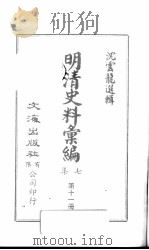 沈雲龍選輯
明清史料彙編
七集
第十一冊
文海出版社有限公司印行